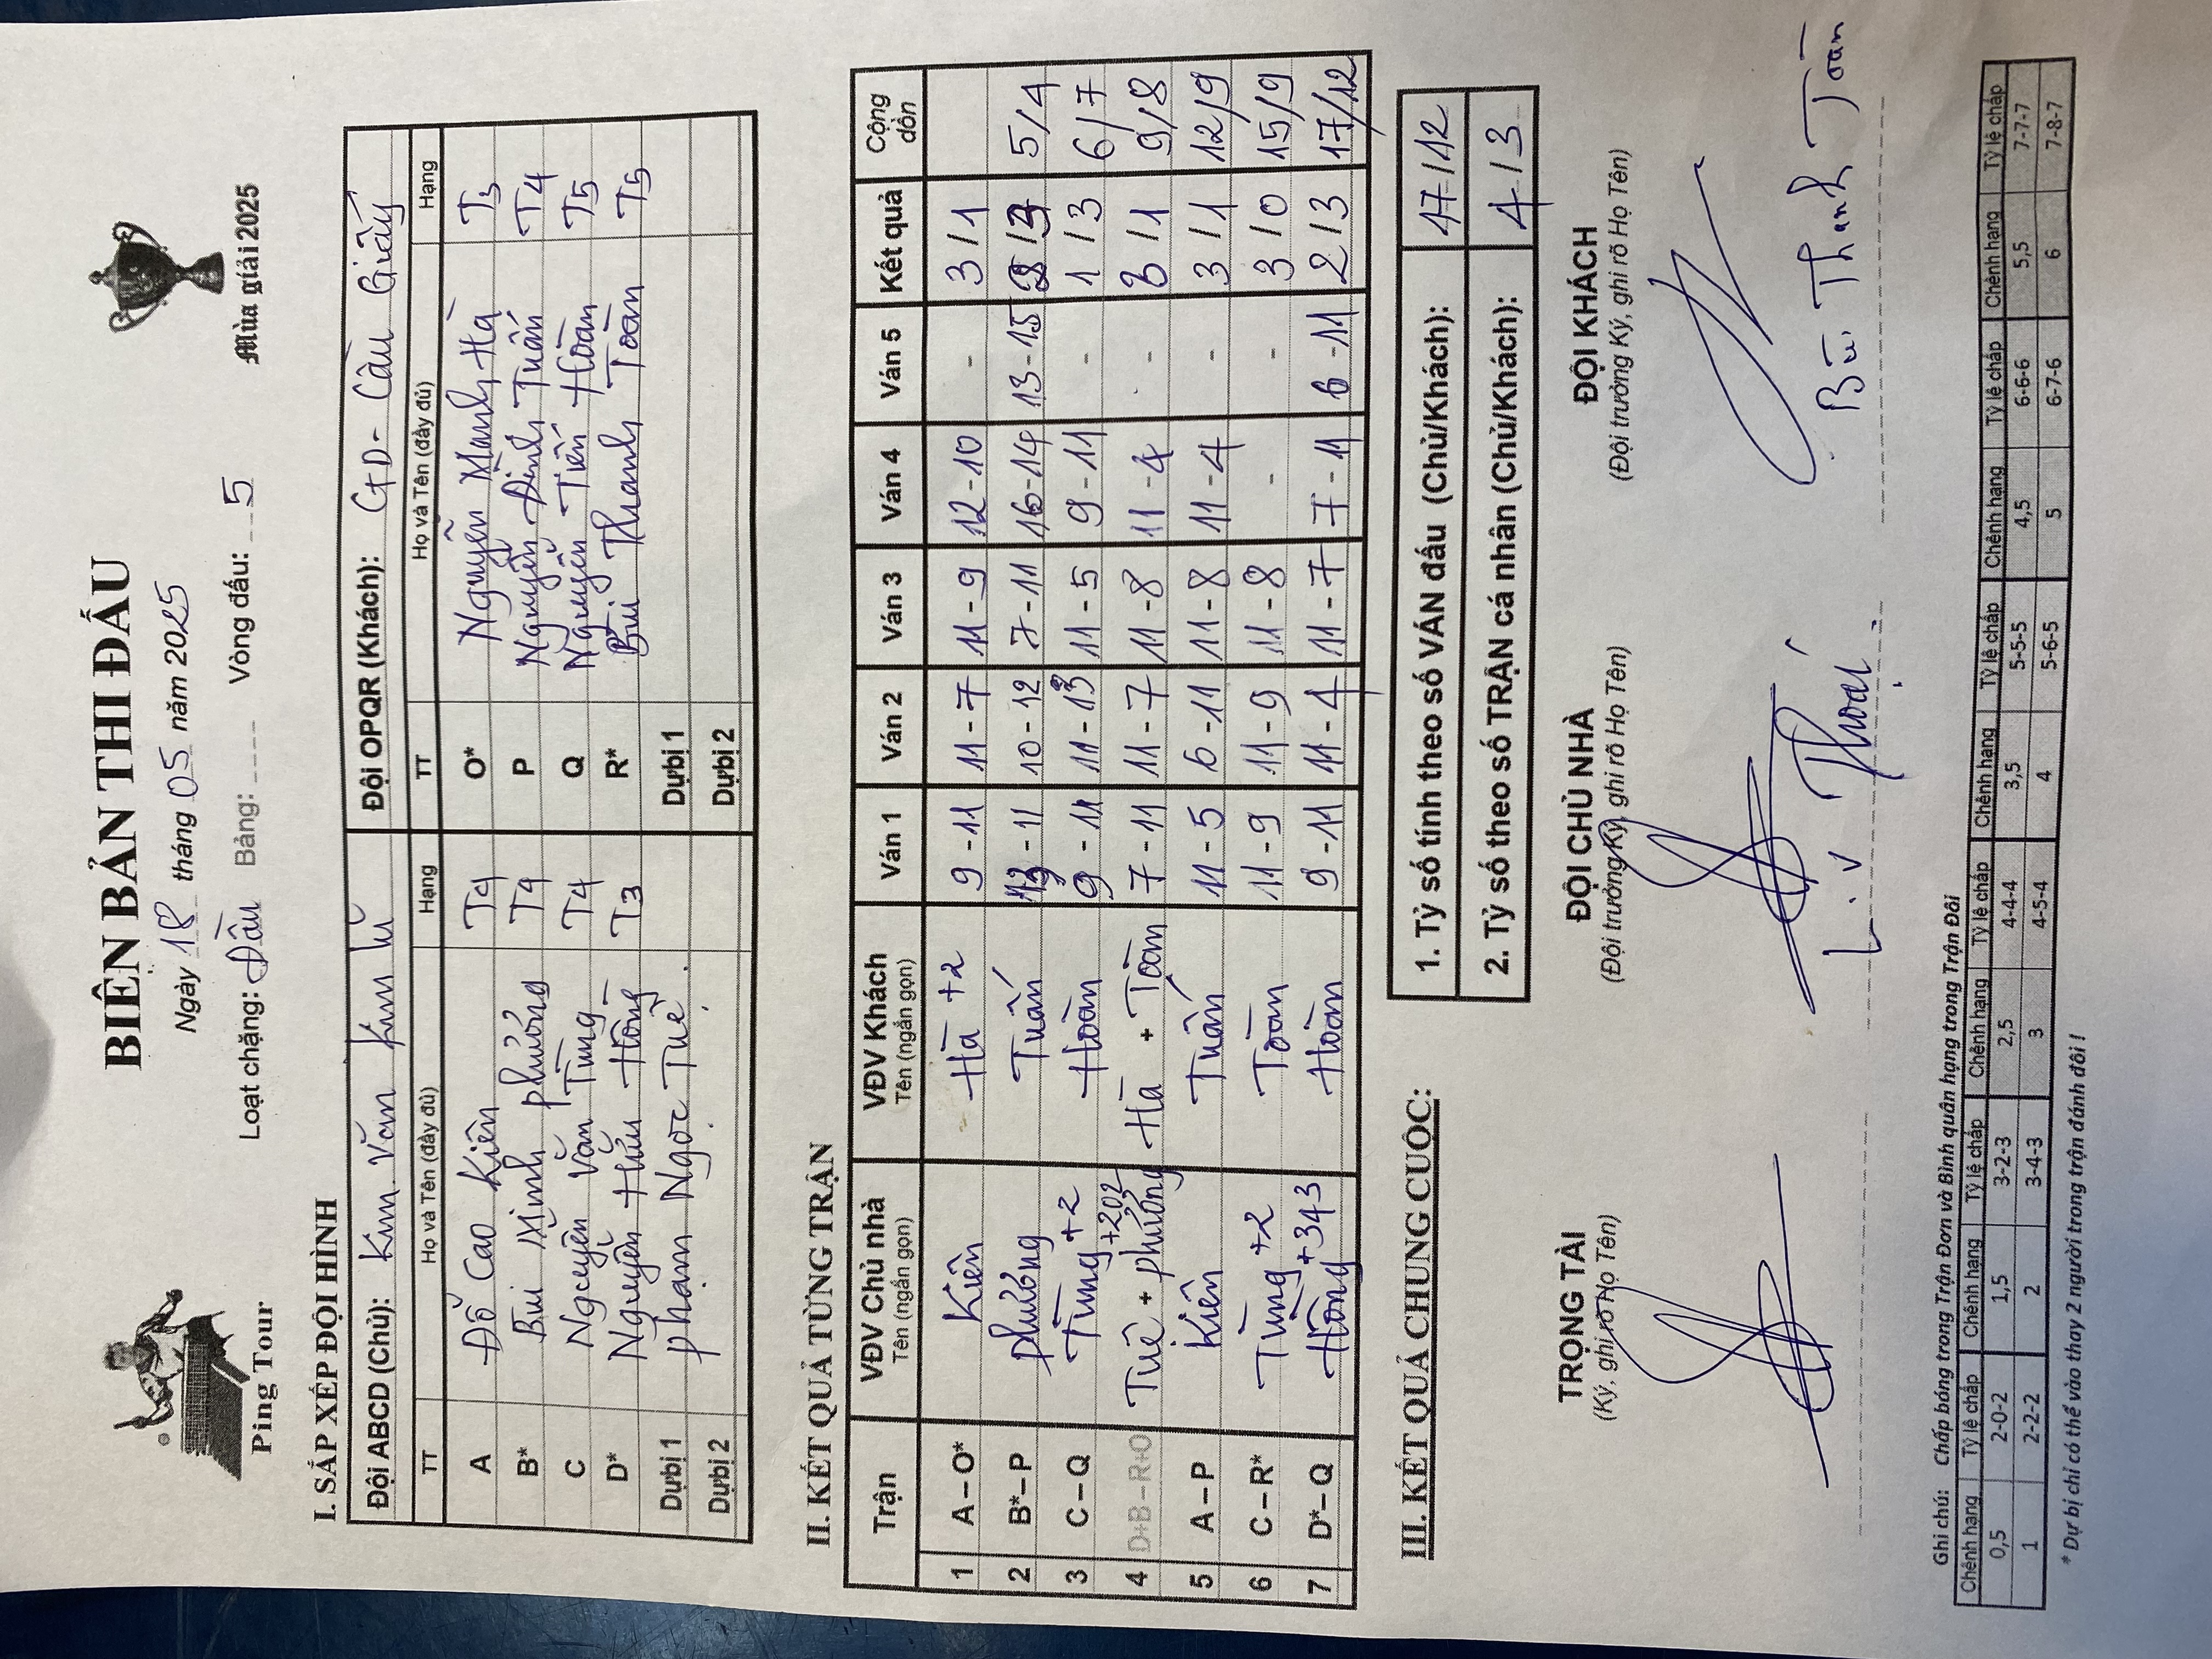 BIÊN BẢN THI ĐẤU
Ngày 18 tháng 05 năm 2025
Loạt chặng: Đầu Bảng: Vòng đấu: 5
Ping Tour
Mùa giải 2025
I. SẮP XẾP ĐỘI HÌNH
Đội ABCD (Chủ): Kim Văn Kim Lũ Đội OPQR (Khách): GD - Cầu Giấy
TT Họ và Tên (đầy đủ) Hạng TT Họ và Tên (đầy đủ) Hạng
A Đỗ Cao Kiên T4 O* Nguyễn Mạnh Hà T5
B* Bùi Minh phương T4 P Nguyễn Đình Tuấn T4
C Nguyễn Văn Tùng T4 Q Nguyễn Tiến Hoàn T5
D* Nguyễn Hữu Hồng T3 R* Bùi Thanh Toàn T5
Dự bị 1 phạm Ngọc Tuệ. Dự bị 1
Dự bị 2 Dự bị 2
II. KẾT QUẢ TỪNG TRẬN
Trận VĐV Chủ nhà VĐV Khách Ván 1 Ván 2 Ván 3 Ván 4 Ván 5 Kết quả Cộng dồn
Tên (ngắn gọn) Tên (ngắn gọn)
1 A – O* Kiên Hà +2 9 - 11 11 - 7 11 - 9 12 - 10 - 3 / 1
2 B* – P phương Tuấn - 11 10 - 12 7 - 11 16 - 14 13 - 15 2 / 3 5 / 4
3 C – Q Tùng +2 Hoàn 9 - 11 11 - 13 11 - 5 9 - 11 - 1 / 3 6 / 7
4 D+B – R+O Tuệ + phương +202 Hà + Toàn 7 - 11 11 - 7 11 - 8 11 - 4 - 3 / 1 9 / 8
5 A – P Kiên Tuấn 11 - 5 6 - 11 11 - 8 11 - 4 - 3 / 1 12 / 9
6 C – R* Tùng +2 Toàn 11 - 9 11 - 9 11 - 8 - - 3 / 0 15 / 9
7 D* – Q Hồng +343 Hoàn 9 - 11 11 - 4 11 - 7 7 - 11 6 - 11 2 / 3 17 / 12
III. KẾT QUẢ CHUNG CUỘC:
1. Tỷ số tính theo số VÁN đấu (Chủ/Khách): 17 / 12
2. Tỷ số theo số TRẬN cá nhân (Chủ/Khách): 4 / 3
TRỌNG TÀI ĐỘI CHỦ NHÀ ĐỘI KHÁCH
(Ký, ghi rõ Họ Tên) (Đội trưởng Ký, ghi rõ Họ Tên) (Đội trưởng Ký, ghi rõ Họ Tên)
L.V Thoại Bùi Thanh Toàn
Ghi chú: Chấp bóng trong Trận Đơn và Bình quân hạng trong Trận Đôi
Chênh hạng Tỷ lệ chấp Chênh hạng Tỷ lệ chấp Chênh hạng Tỷ lệ chấp Chênh hạng Tỷ lệ chấp Chênh hạng Tỷ lệ chấp Chênh hạng Tỷ lệ chấp
0,5 2-0-2 1,5 3-2-3 2,5 4-4-4 3,5 5-5-5 4,5 6-6-6 5,5 7-7-7
1 2-2-2 2 3-4-3 3 4-5-4 4 5-6-5 5 6-7-6 6 7-8-7
* Dự bị chỉ có thể vào thay 2 người trong trận đánh đôi !